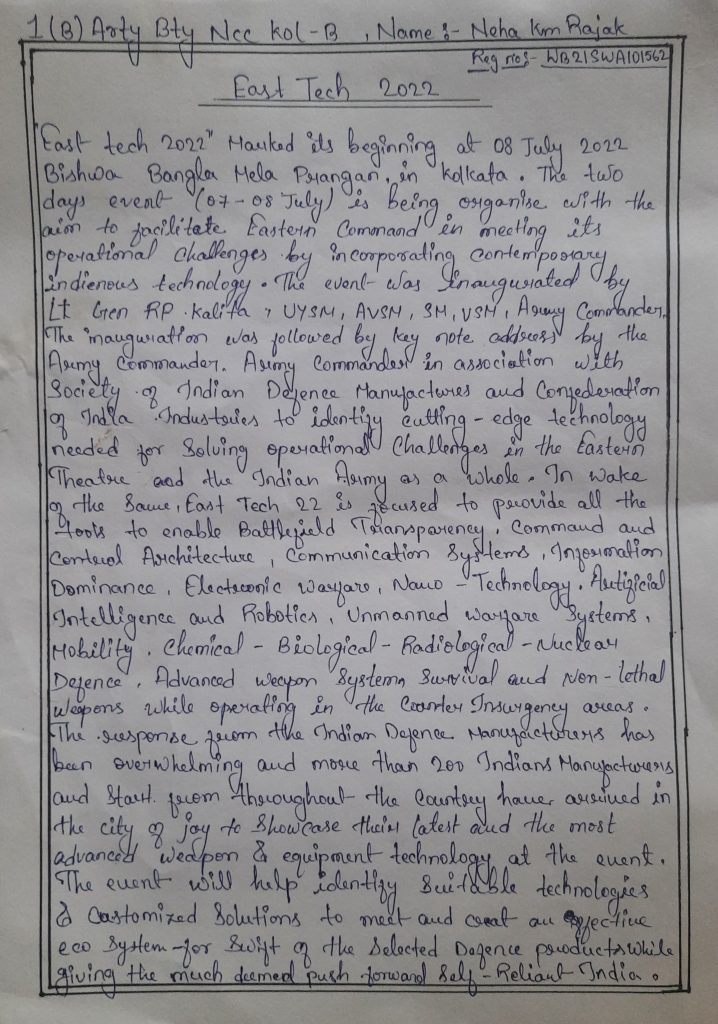 1 (B) Arty Bty Ncc Kol-B , Name :- Neha Km Rajak
Reg no:- WB21SWA101562
East Tech 2022
"East tech 2022" Marked its beginning at 08 July 2022
Bishwa Bangla Mela Prangan, in Kolkata. The two
days event (07-08 July) is being organise with the
aim to facilitate Eastern Command in meeting its
operational Challenges by incorporating contemporary
indienous technology. The event was inaugurated by
Lt Gen RP Kalita, UYSM, AVSM, SM, VSM, Army Commander.
The inauguration was followed by key note address by the
Army Commander. Army Commander in association with
Society of Indian Defence Manufactures and Confederation
of India Industries to identify cutting-edge technology
needed for Solving operational Challenges in the Eastern
Theatre and the Indian Army as a whole. In wake
of the Same, East Tech 22 is focused to provide all the
tools to enable Battlefield Transparency, Command and
Control Architecture, Communication Systems, Information
Dominance, Electronic warfare, Nano-Technology, Artificial
Intelligence and Robotics, Unmanned warfare Systems,
Mobility, Chemical-Biological-Radiological-Nuclear
Defence, Advanced weapon System, Survival and Non-lethal
Weapons while operating in the Counter Insurgency areas.
The response from the Indian Defence Manufacturers has
been overwhelming and more than 200 Indians Manufacturers
and Start. from throughout the Country have arrived in
the city of joy to Showcase their latest and the most
advanced weapon & equipment technology at the event.
The event will help identify Suitable technologies
& Customized Solutions to meet and an effective
eco System for Swift of the Selected Defence products while
giving the much deemed push forward Self-Reliant India.